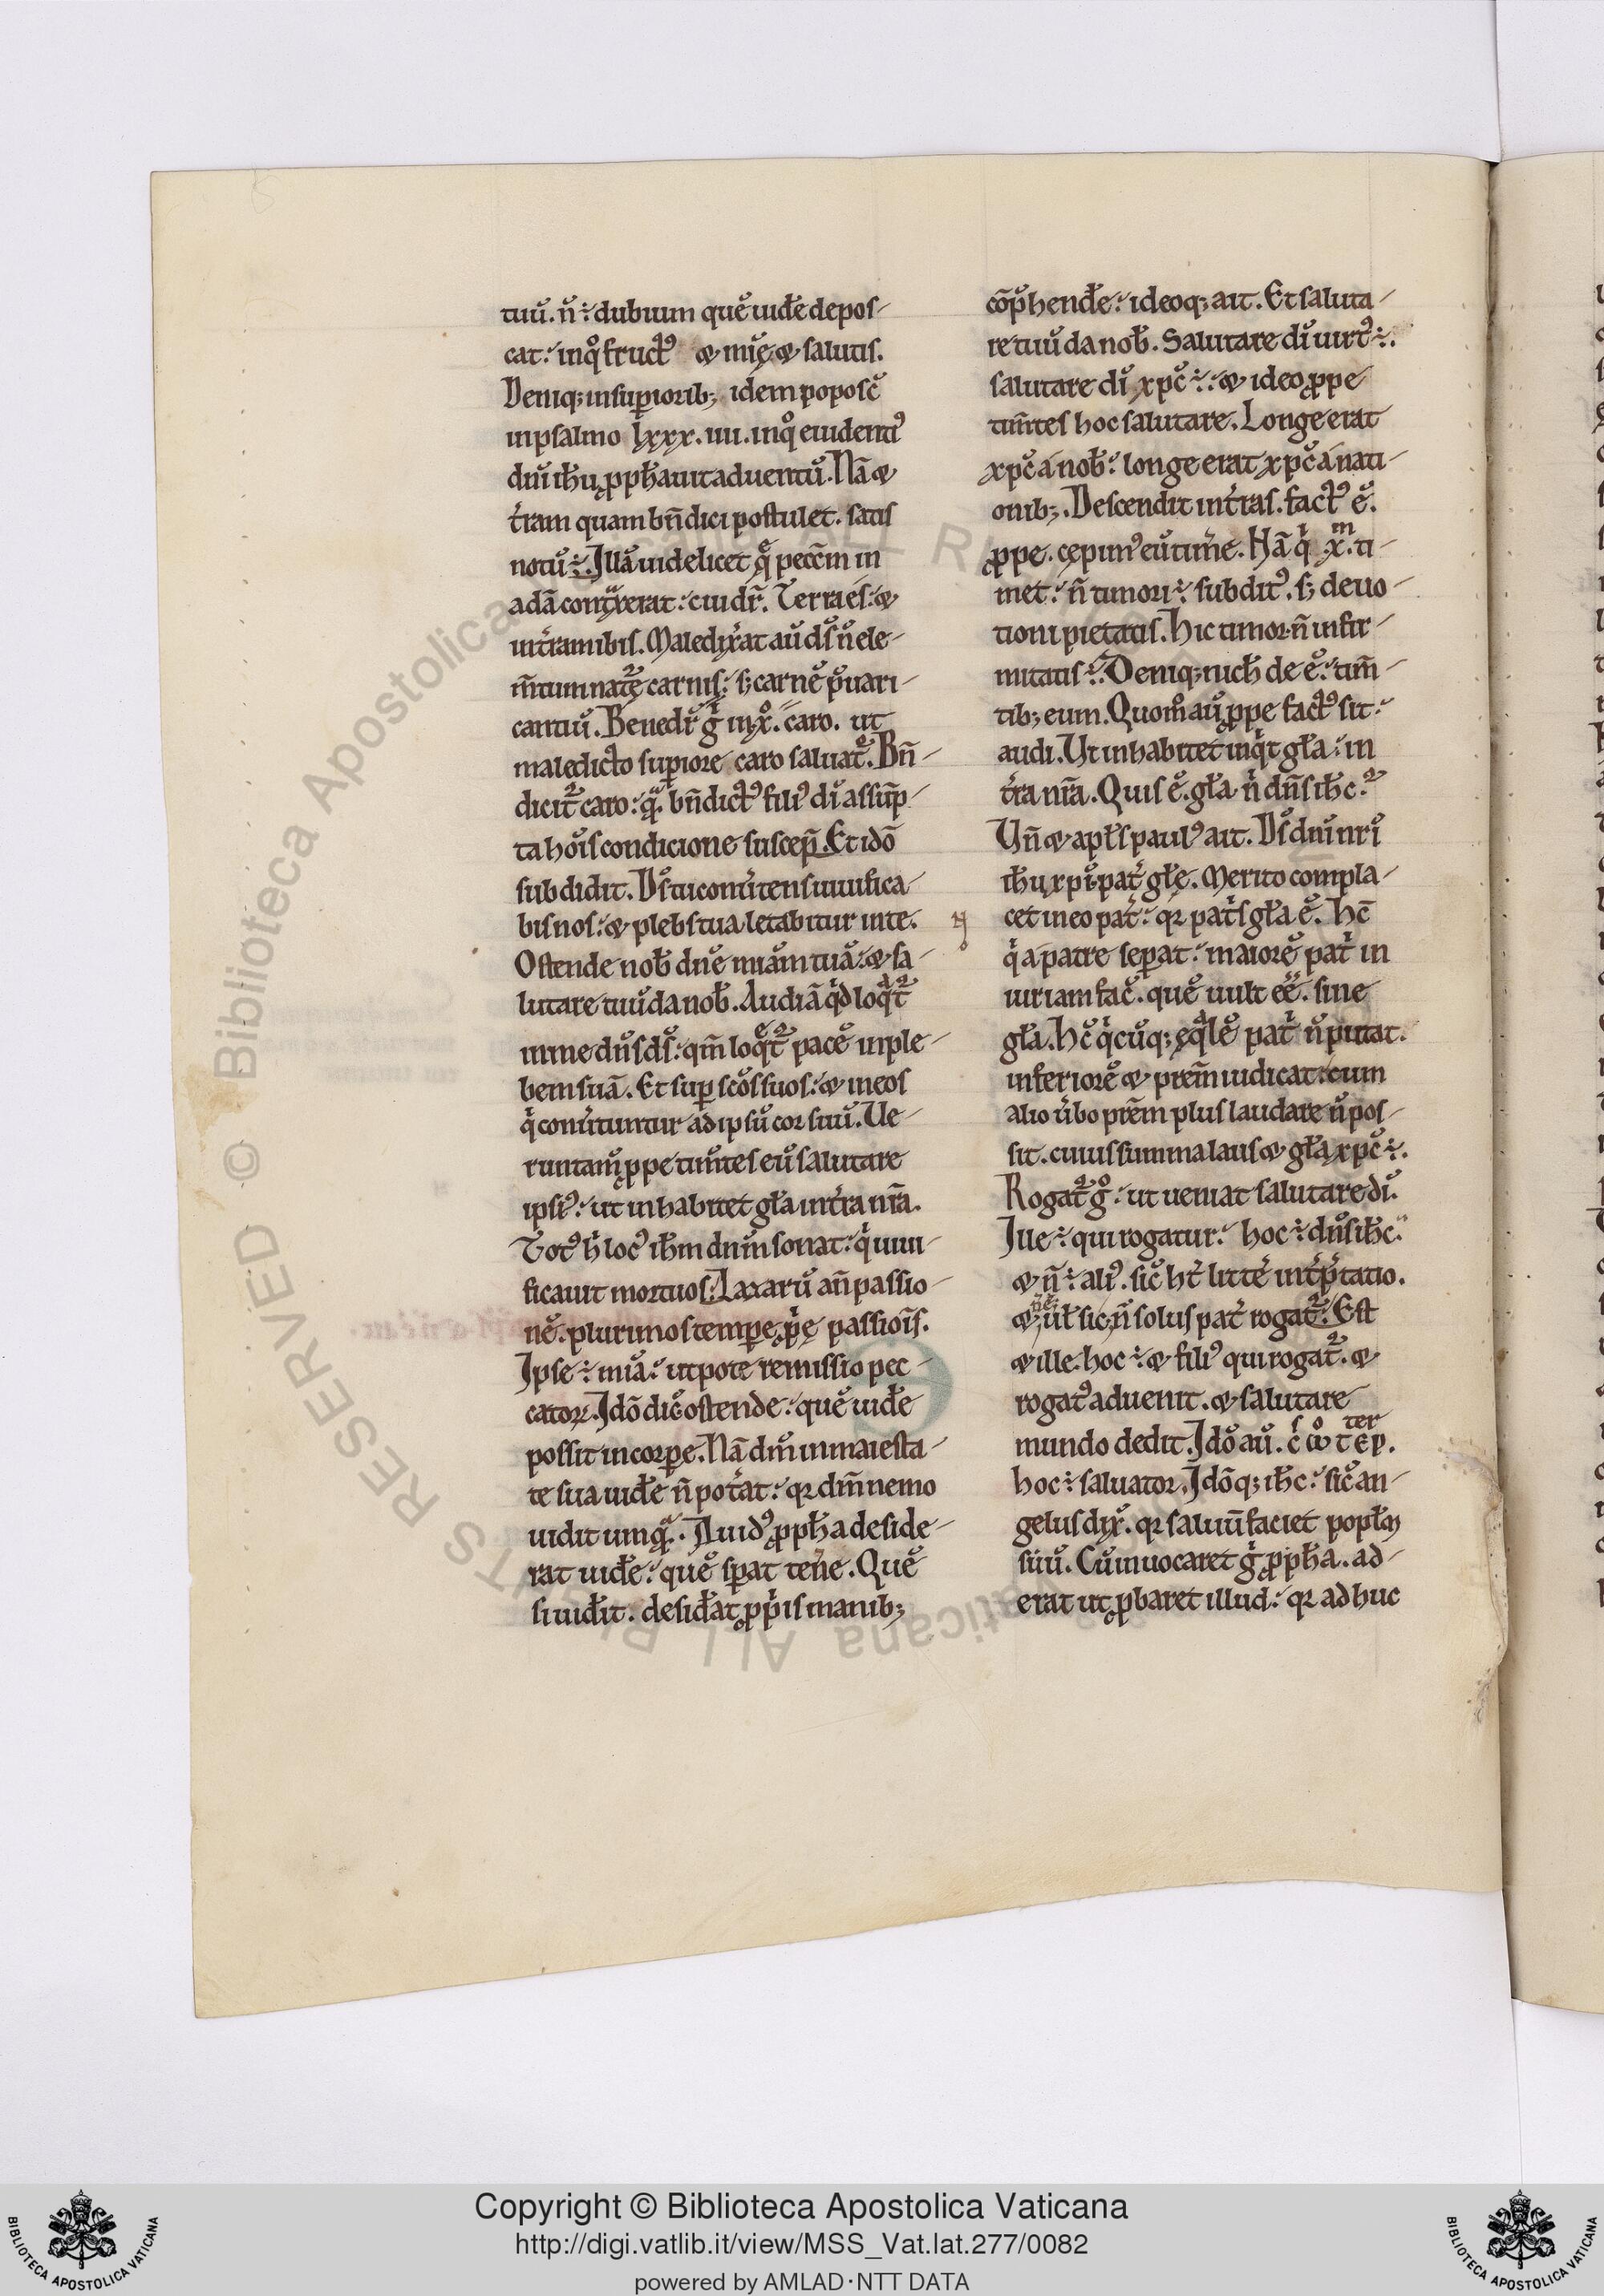 tuū. n̄ ÷ dubium quē uiđe depos-
cat: in qͦ fructꝰ & mīę & salutis.
Deniq; in suꝑiorib; idem poposč
in psalmo lxxx.iiii. in qͦ euidentiꝰ
dnī ihū ꝓpħauit aduentū. Nā &
t̓ram quam bn̄dici postulet. satis
notū ÷. Illā uidelicet quę pecc̄m in
adā contͣxerat: cui dr̄. Terra es: &
in t̓ram ibis. Maledix̓at aū ds̄ n̄ ele-
m̄tum naturę carnis: s; carnē p̄uari-
cantiū. Benedr̄ gͥ in xͦ. caro. ut
maledicto suꝑiore caro saluat᷑. Bn̄-
dicit᷑ caro: qͣ. bn̄dictꝰ filiꝰ dī assūp-
ta hoīs condicione suscep̄. Et idō
subdidit. Ds̄ tu conu̓tens uiuifica-
bis nos: & plebs tua letabitur in te.
Ostende nob̄ dn̄e miām tuā: & sa-
lutare tuū da nob̄. Audiā qͥd loqͣt᷑
in me dn̄s ds̄: qm̄ loqͤt᷑ pacē in ple-
bem suā. Et suꝑ sc̄os suos: & in eos
qͥ conu̓tuntur ad ipsū cor suū. Ve-
runtam̄ ꝓpe tim̄tes eū salutare
ipsiꝰ: ut inhabitet gła in t̓ra nr̄a.
Totꝰ hͥ locꝰ ihm̄ dnm̄ sonat: qͥ uiui-
ficauit mortuos. Lazarū an̄ passio-
nē. plurimos tempe ꝓpͥę passiōis.
Ipse ÷ miā: utpote remissio pec-
catoꝝ. Idō dic̄ ostende: quē uiđe
possit in corpe. Nā dm̄ in maiesta-
te sua uiđe n̄ pot̓at: qꝛ dm̄ nemo
uidit umqͣ. Auidꝰ ꝓpħa deside-
rat uiđe: quē sꝑat ten̓e. Quē
si uiđit. desiđat ꝓpͥis manib;
cōp̄henđe: ideoq; ait. Et saluta-
re tuū da nob̄. Salutare dī uirtꝰ ÷.
salutare dī xpc̄ ÷: & ideo ꝓpe
tim̄tes hoc salutare. Longe erat
xpc̄ a nob̄: longe erat xpc̄ a nati-
onib;. Descendit in t̓ras. factꝰ ē.
ꝓpe. cępimꝰ eū tim̓e. Nā qͥ xᵐ. ti-
met: n̄ timori ÷ subditꝰ. s; deuo-
tioni pietatis. Hic timor n̄ infir-
mitatis ÷. Deniq; nicħ de ē: tim̄-
tib; eum. Quom̊ aū ꝓpe factꝰ sit:
audi. Ut inhabitet inqͥt gła: in
t̓ra nr̄a. Quis ē. gła nͥ dn̄s ihc̄?
Vn̄ & apłs paulꝰ ait. Ds̄ dnī nrī
ihū xpī pat̓ głę. Merito compla-
cet in eo pat̓: qꝛ pat̓s gła ē. Hc̄
qͥ a patre seꝑat: maiorē patͥ in
iuriam fac̄. quē uult eē. sine
gła. Hc̄ qͥcūq; ęqͣlē patͥ n̄ putat.
inferiorē & prem̄ iudicat. cum
alio u̓bo prēm plus laudare n̄ pos-
sit. cuius summa laus & gła xpc̄ ÷.
Rogat᷑ gͦ: ut ueniat salutare dī.
Ille ÷ qui rogatur: hoc ÷ dn̄s ihc̄.
& n̄ ÷ aliꝰ. sic̄ ht̄ litt̓e int̓p̄tatio.
& uł sic n̄ solus pat̓ rogat᷑. Est
& ille. hoc ÷ & filiꝰ qui rogat᷑. &
rogatꝰ aduenit. & salutare
mundo dedit. Idō aū. c̓ ω τ ε p. ter
hoc ÷ saluator. Idōq; ihc̄: sic̄ an-
gelus dix̄. qꝛ saluū faciet popłm
suū. Cū inuocaret gͥ ꝓpħa. ad-
erat ut ꝓbaret illud: qꝛ adhuc
Copyright © Biblioteca Apostolica Vaticana
http://digi.vatlib.it/view/MSS_Vat.lat.277/0082
powered by AMLAD·NTT DATA